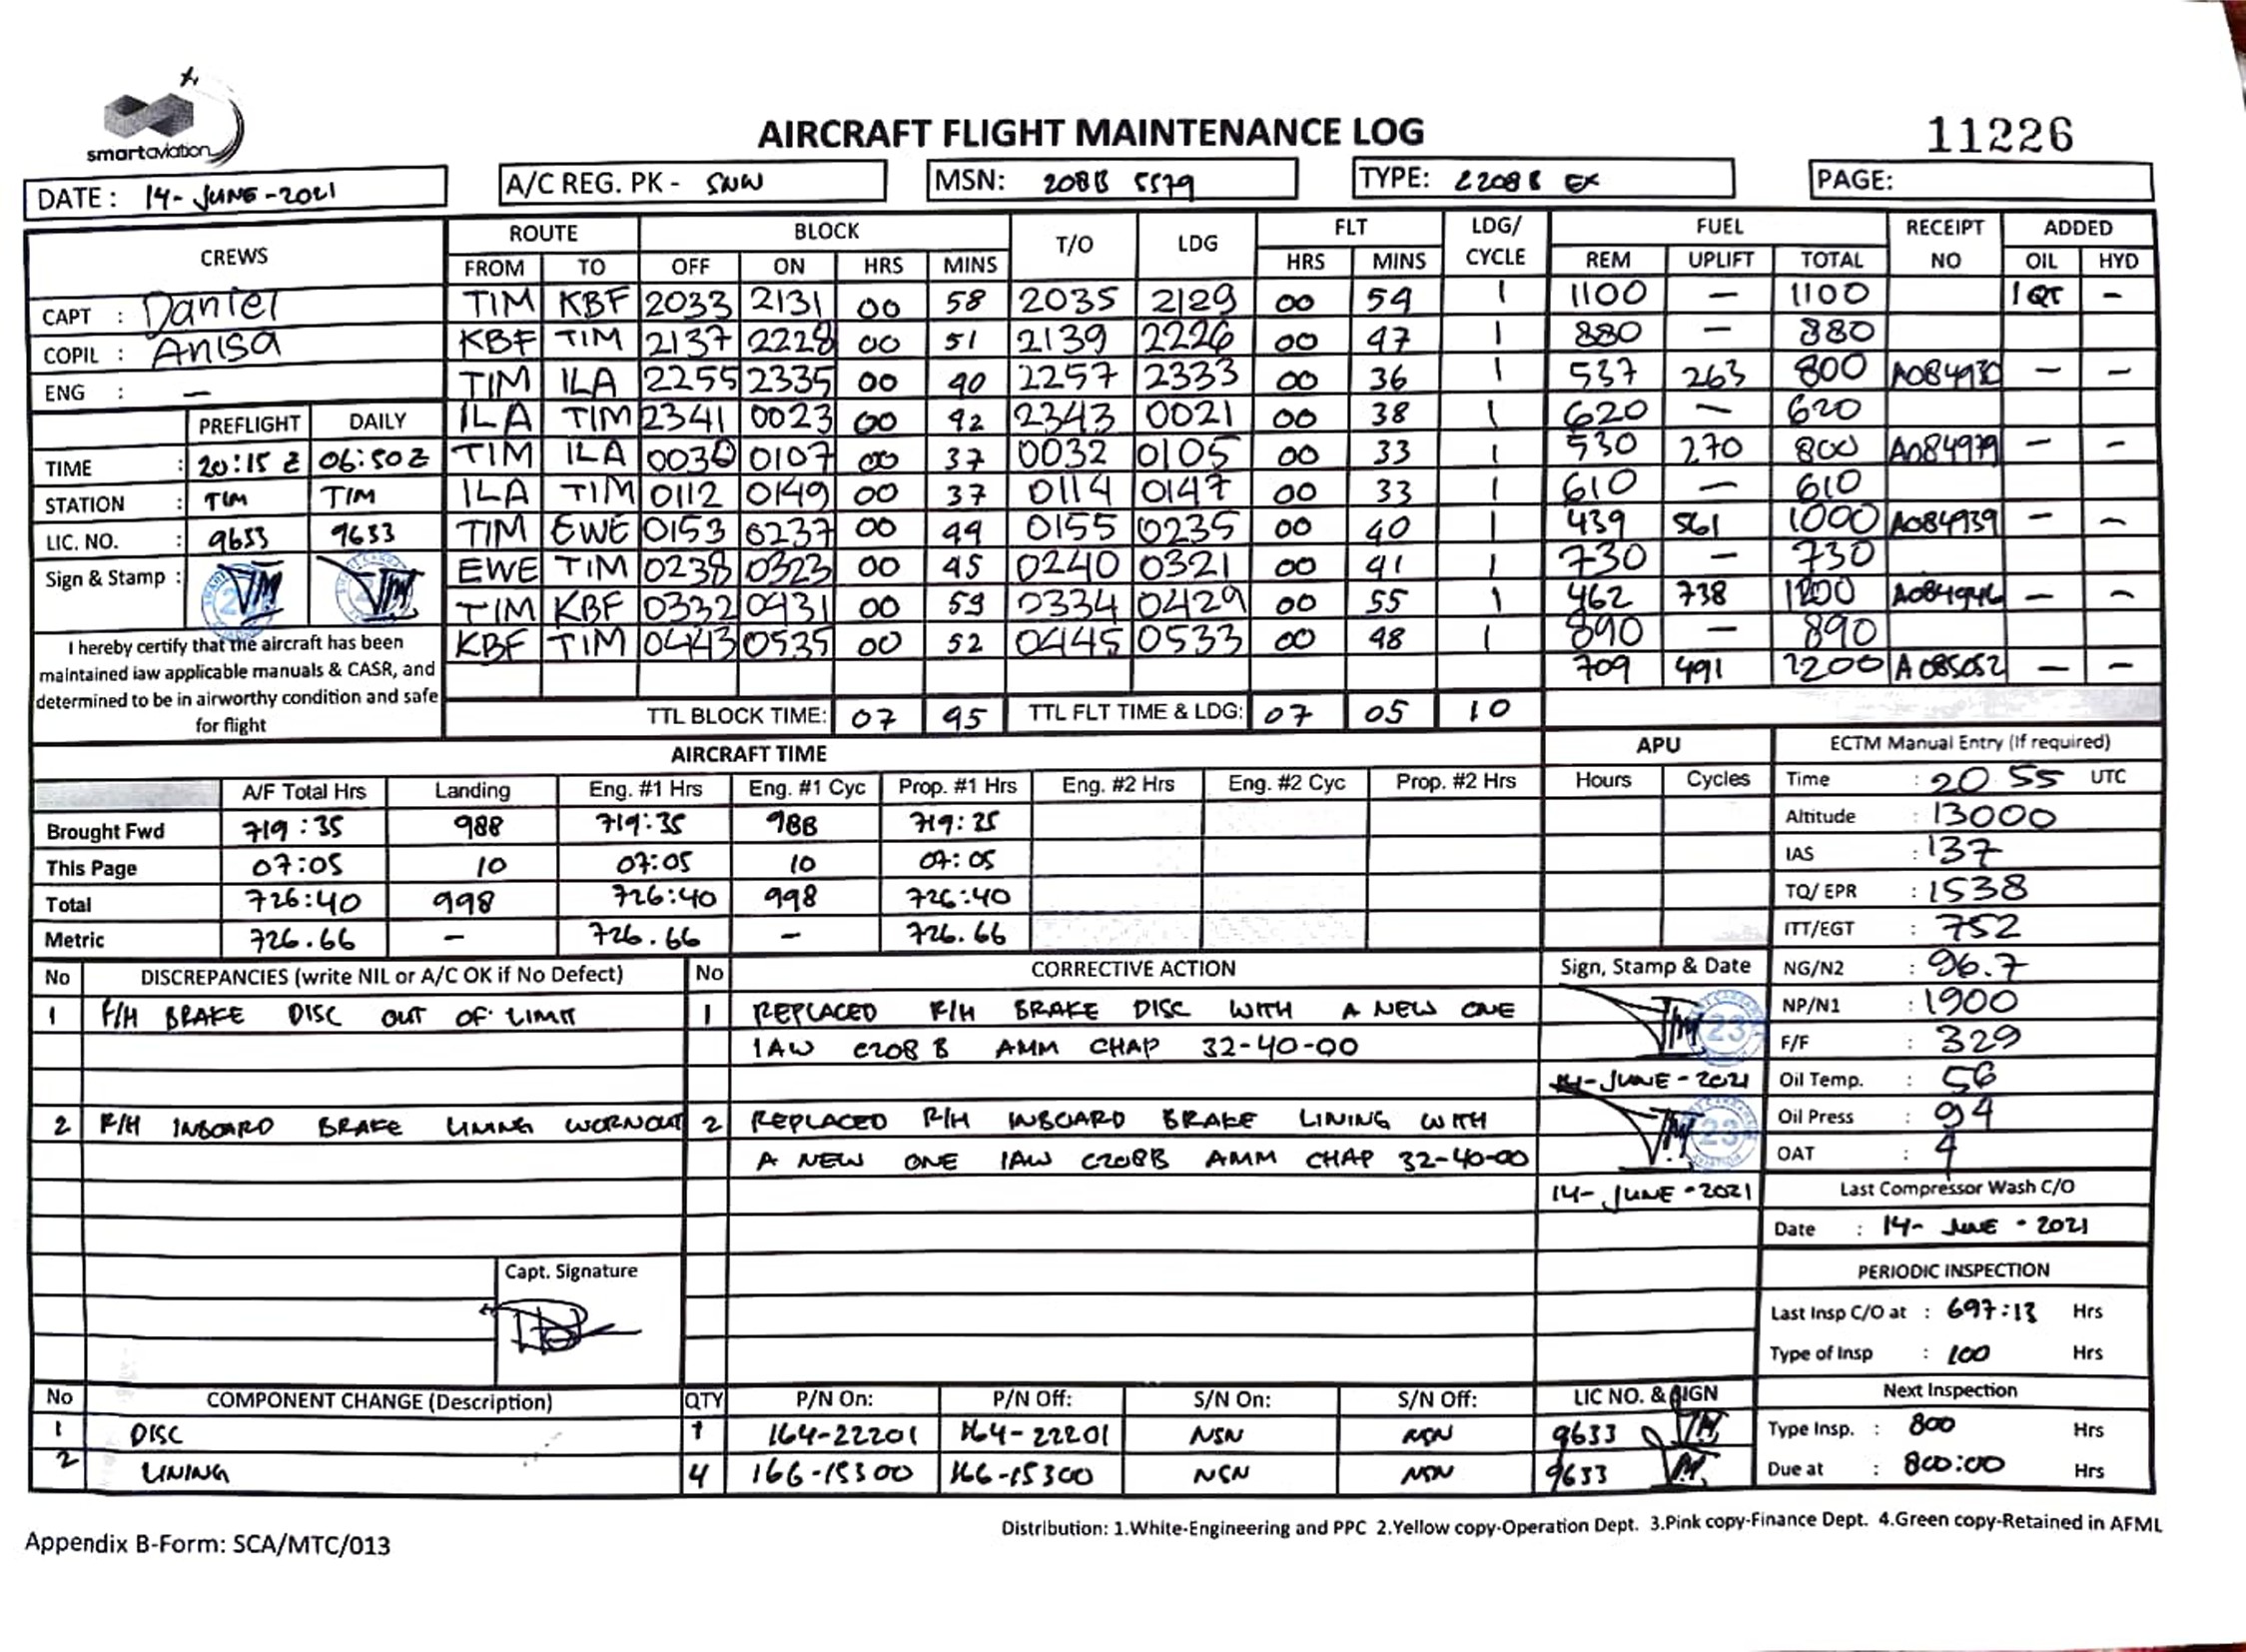 smartaviation
AIRCRAFT FLIGHT MAINTENANCE LOG
11226
DATE : 14-JUNE-2021
A/C REG. PK - SNW
MSN: 208B 5579
TYPE: C208B EX
PAGE:
CREWS ROUTE BLOCK T/O LDG FLT LDG/ CYCLE FUEL RECEIPT NO ADDED
FROM TO OFF ON HRS MINS HRS MINS REM UPLIFT TOTAL OIL HYD
CAPT : Daniel TIM KBF 2033 2131 00 58 2035 2129 00 54 1 1100 — 1100 1QT —
COPIL : Anisa KBF TIM 2137 2228 00 51 2139 2226 00 47 1 880 — 880
ENG : — TIM ILA 2255 2335 00 40 2257 2333 00 36 1 537 263 800 A084930 — —
PREFLIGHT DAILY ILA TIM 2341 0023 00 42 2343 0021 00 38 1 620 — 620
TIME : 20:15 Z 06:50 Z TIM ILA 0030 0107 00 37 0032 0105 00 33 1 530 270 800 — —
STATION : TIM TIM ILA TIM 0112 0149 00 37 0114 0147 00 33 1 610 — 610
LIC. NO. : 9633 9633 TIM EWE 0153 0237 00 44 0155 0235 00 40 1 439 561 1000 A084939 — —
Sign & Stamp : EWE TIM 0238 0323 00 45 0240 0321 00 41 1 730 — 730
TIM KBF 0332 0431 00 59 0334 0429 00 55 1 462 738 1200 A084946 — —
KBF TIM 0443 0535 00 52 0445 0533 00 48 1 890 — 890
709 491 1200 A085052 — —
I hereby certify that the aircraft has been
maintained iaw applicable manuals & CASR, and
determined to be in airworthy condition and safe
for flight
TTL BLOCK TIME: 07 45 TTL FLT TIME & LDG: 07 05 10
AIRCRAFT TIME APU
A/F Total Hrs Landing Eng. #1 Hrs Eng. #1 Cyc Prop. #1 Hrs Eng. #2 Hrs Eng. #2 Cyc Prop. #2 Hrs Hours Cycles
Brought Fwd 719:35 988 719:35 988 719:35
This Page 07:05 10 07:05 10 07:05
Total 726:40 998 726:40 998 726:40
Metric 726.66 — 726.66 — 726.66
ECTM Manual Entry (If required)
Time : 20 55 UTC
Altitude : 13000
IAS : 137
TQ/ EPR : 1538
ITT/EGT : 752
NG/N2 : 96.7
NP/N1 : 1900
F/F : 329
Oil Temp. : 56
Oil Press : 94
OAT : 4
Last Compressor Wash C/O
Date : 14- JUNE - 2021
No DISCREPANCIES (write NIL or A/C OK if No Defect) No CORRECTIVE ACTION Sign, Stamp & Date
1 R/H BRAKE DISC OUT OF LIMIT 1 REPLACED R/H BRAKE DISC WITH A NEW ONE
IAW C208B AMM CHAP 32-40-00
23
14-JUNE-2021
2 R/H INBOARD BRAKE LINING WORNOUT 2 REPLACED R/H INBOARD BRAKE LINING WITH
A NEW ONE IAW C208B AMM CHAP 32-40-00
23
14-JUNE-2021
Capt. Signature
PERIODIC INSPECTION
Last Insp C/O at : 697:13 Hrs
Type of Insp : 100 Hrs
Next Inspection
Type Insp. : 800 Hrs
Due at : 800:00 Hrs
No COMPONENT CHANGE (Description) QTY P/N On: P/N Off: S/N On: S/N Off: LIC NO. & SIGN
1 DISC 1 164-22201 164-22201 NSN NSN 9633
2 LINING 4 166-15300 166-15300 NSN NSN 9633
Appendix B-Form: SCA/MTC/013
Distribution: 1.White-Engineering and PPC 2.Yellow copy-Operation Dept. 3.Pink copy-Finance Dept. 4.Green copy-Retained in AFML